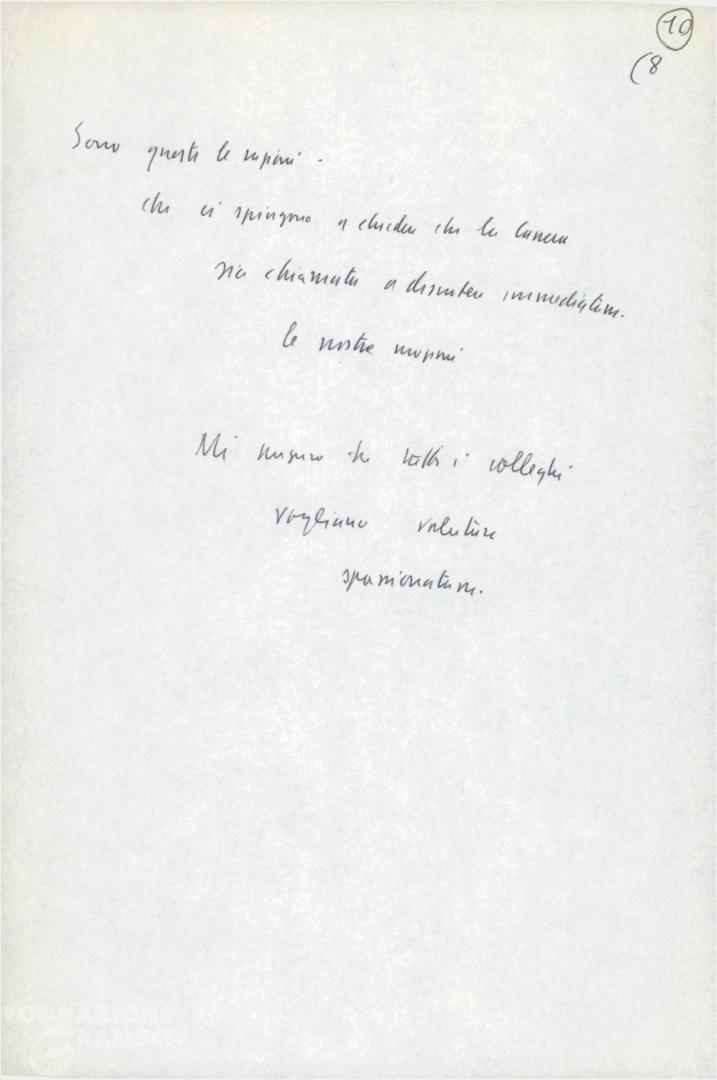 10
(8
Sono queste le ragioni -
che ci spingono a chiedere che la Camera
sia chiamata a discutere immediatam.
le nostre mozioni
Mi auguro che tutti i colleghi
vogliano valutare
spassionatam.
FONDAZIONE
GRAMSCI